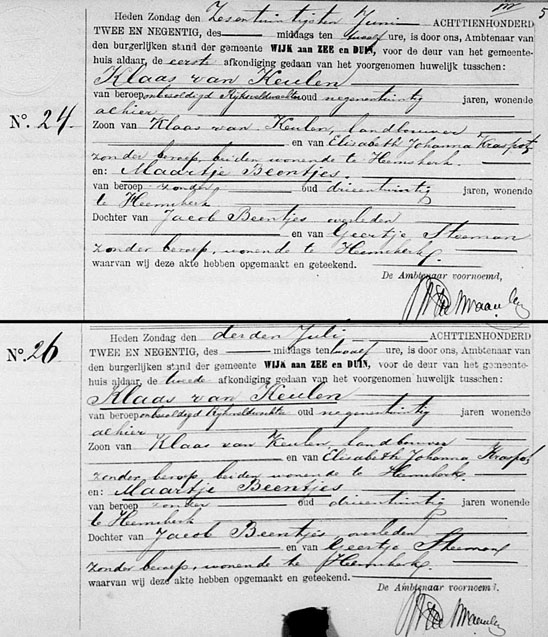 Heden Zondag den Zesentwintigsten Juni ACHTTIENHONDERD
TWEE EN NEGENTIG, des middags ten twaalf ure, is door ons, Ambtenaar van
den burgerlijken stand der gemeente WIJK aan ZEE en DUIN, voor de deur van het gemeente-
huis aldaar, de eerste afkondiging gedaan van het voorgenomen huwelijk tusschen:
Klaas van Keulen
van beroep onbezoldigd Rijksveldwachter oud negenentwintig jaren, wonende
alhier
No. 24.
Zoon van Klaas van Keulen, landbouwer
en van Elisabeth Johanna Kraspot,
zonder beroep, beiden wonende te Heemskerk.
en: Maartje Beentjes.
van beroep zonder oud drieentwintig jaren, wonende
te Heemskerk
Dochter van Jacob Beentjes overleden
en van Geertje Steeman
zonder beroep, wonende te Heemskerk.
waarvan wij deze akte hebben opgemaakt en geteekend.
De Ambtenaar voornoemd,
No. 26
Heden Zondag den derden Juli ACHTTIENHONDERD
TWEE EN NEGENTIG, des middags ten twaalf ure, is door ons, Ambtenaar van
den burgerlijken stand der gemeente WIJK aan ZEE en DUIN, voor de deur van het gemeente-
huis aldaar, de tweede afkondiging gedaan van het voorgenomen huwelijk tusschen:
Klaas van Keulen
van beroep onbezoldigd Rijksveldwachter oud negenentwintig jaren, wonende
alhier
Zoon van Klaas van Keulen, landbouwer
en van Elisabeth Johanna Kraspot,
zonder beroep beiden wonende te Heemskerk.
en: Maartje Beentjes
van beroep zonder oud drieentwintig jaren wonende
te Heemskerk
Dochter van Jacob Beentjes overleden
en van Geertje Steeman
zonder beroep, wonende te Heemskerk.
waarvan wij deze akte hebben opgemaakt en geteekend.
De Ambtenaar voornoemd,